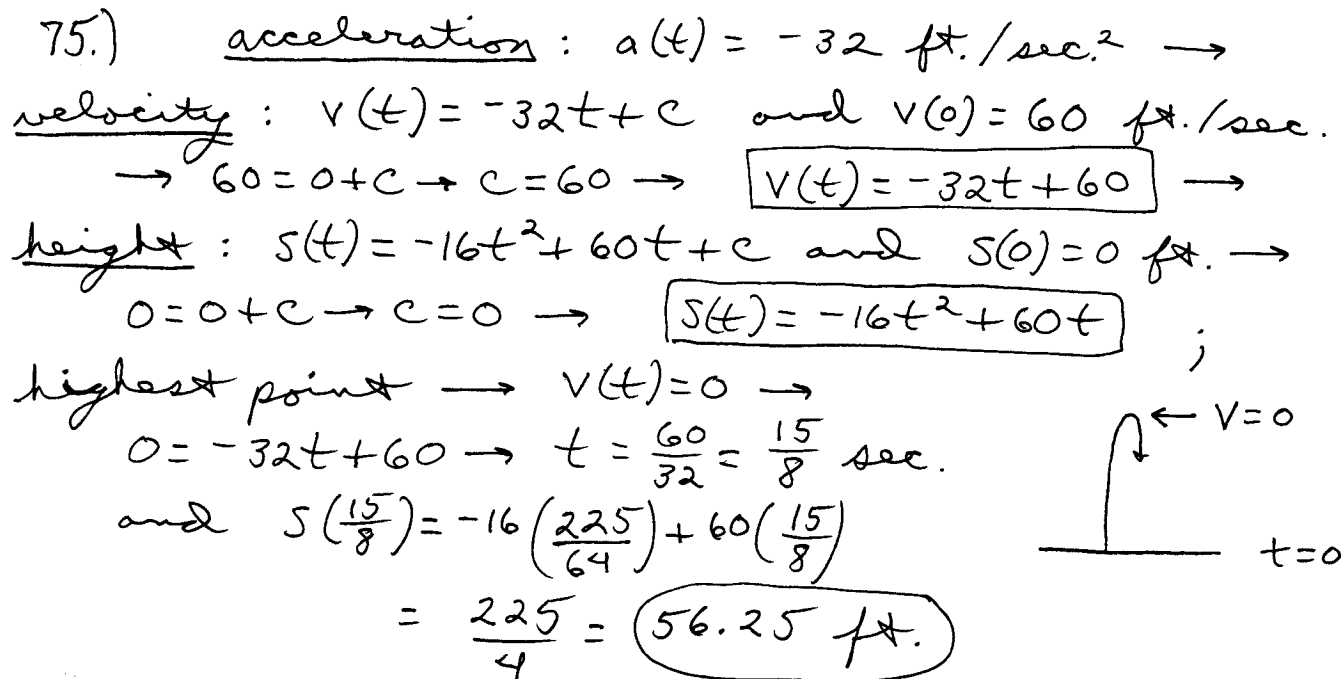 75.) acceleration : a(t) = -32 ft./sec.² →
velocity : v(t) = -32t + c and v(0) = 60 ft./sec.
→ 60 = 0 + c → c = 60 → v(t) = -32t + 60 →
height : s(t) = -16t² + 60t + c and s(0) = 0 ft. →
0 = 0 + c → c = 0 → s(t) = -16t² + 60t ;
highest point → v(t) = 0 →
0 = -32t + 60 → t = 60/32 = 15/8 sec.
← v = 0
and s(15/8) = -16(225/64) + 60(15/8)
t = 0
= 225/4 = 56.25 ft.